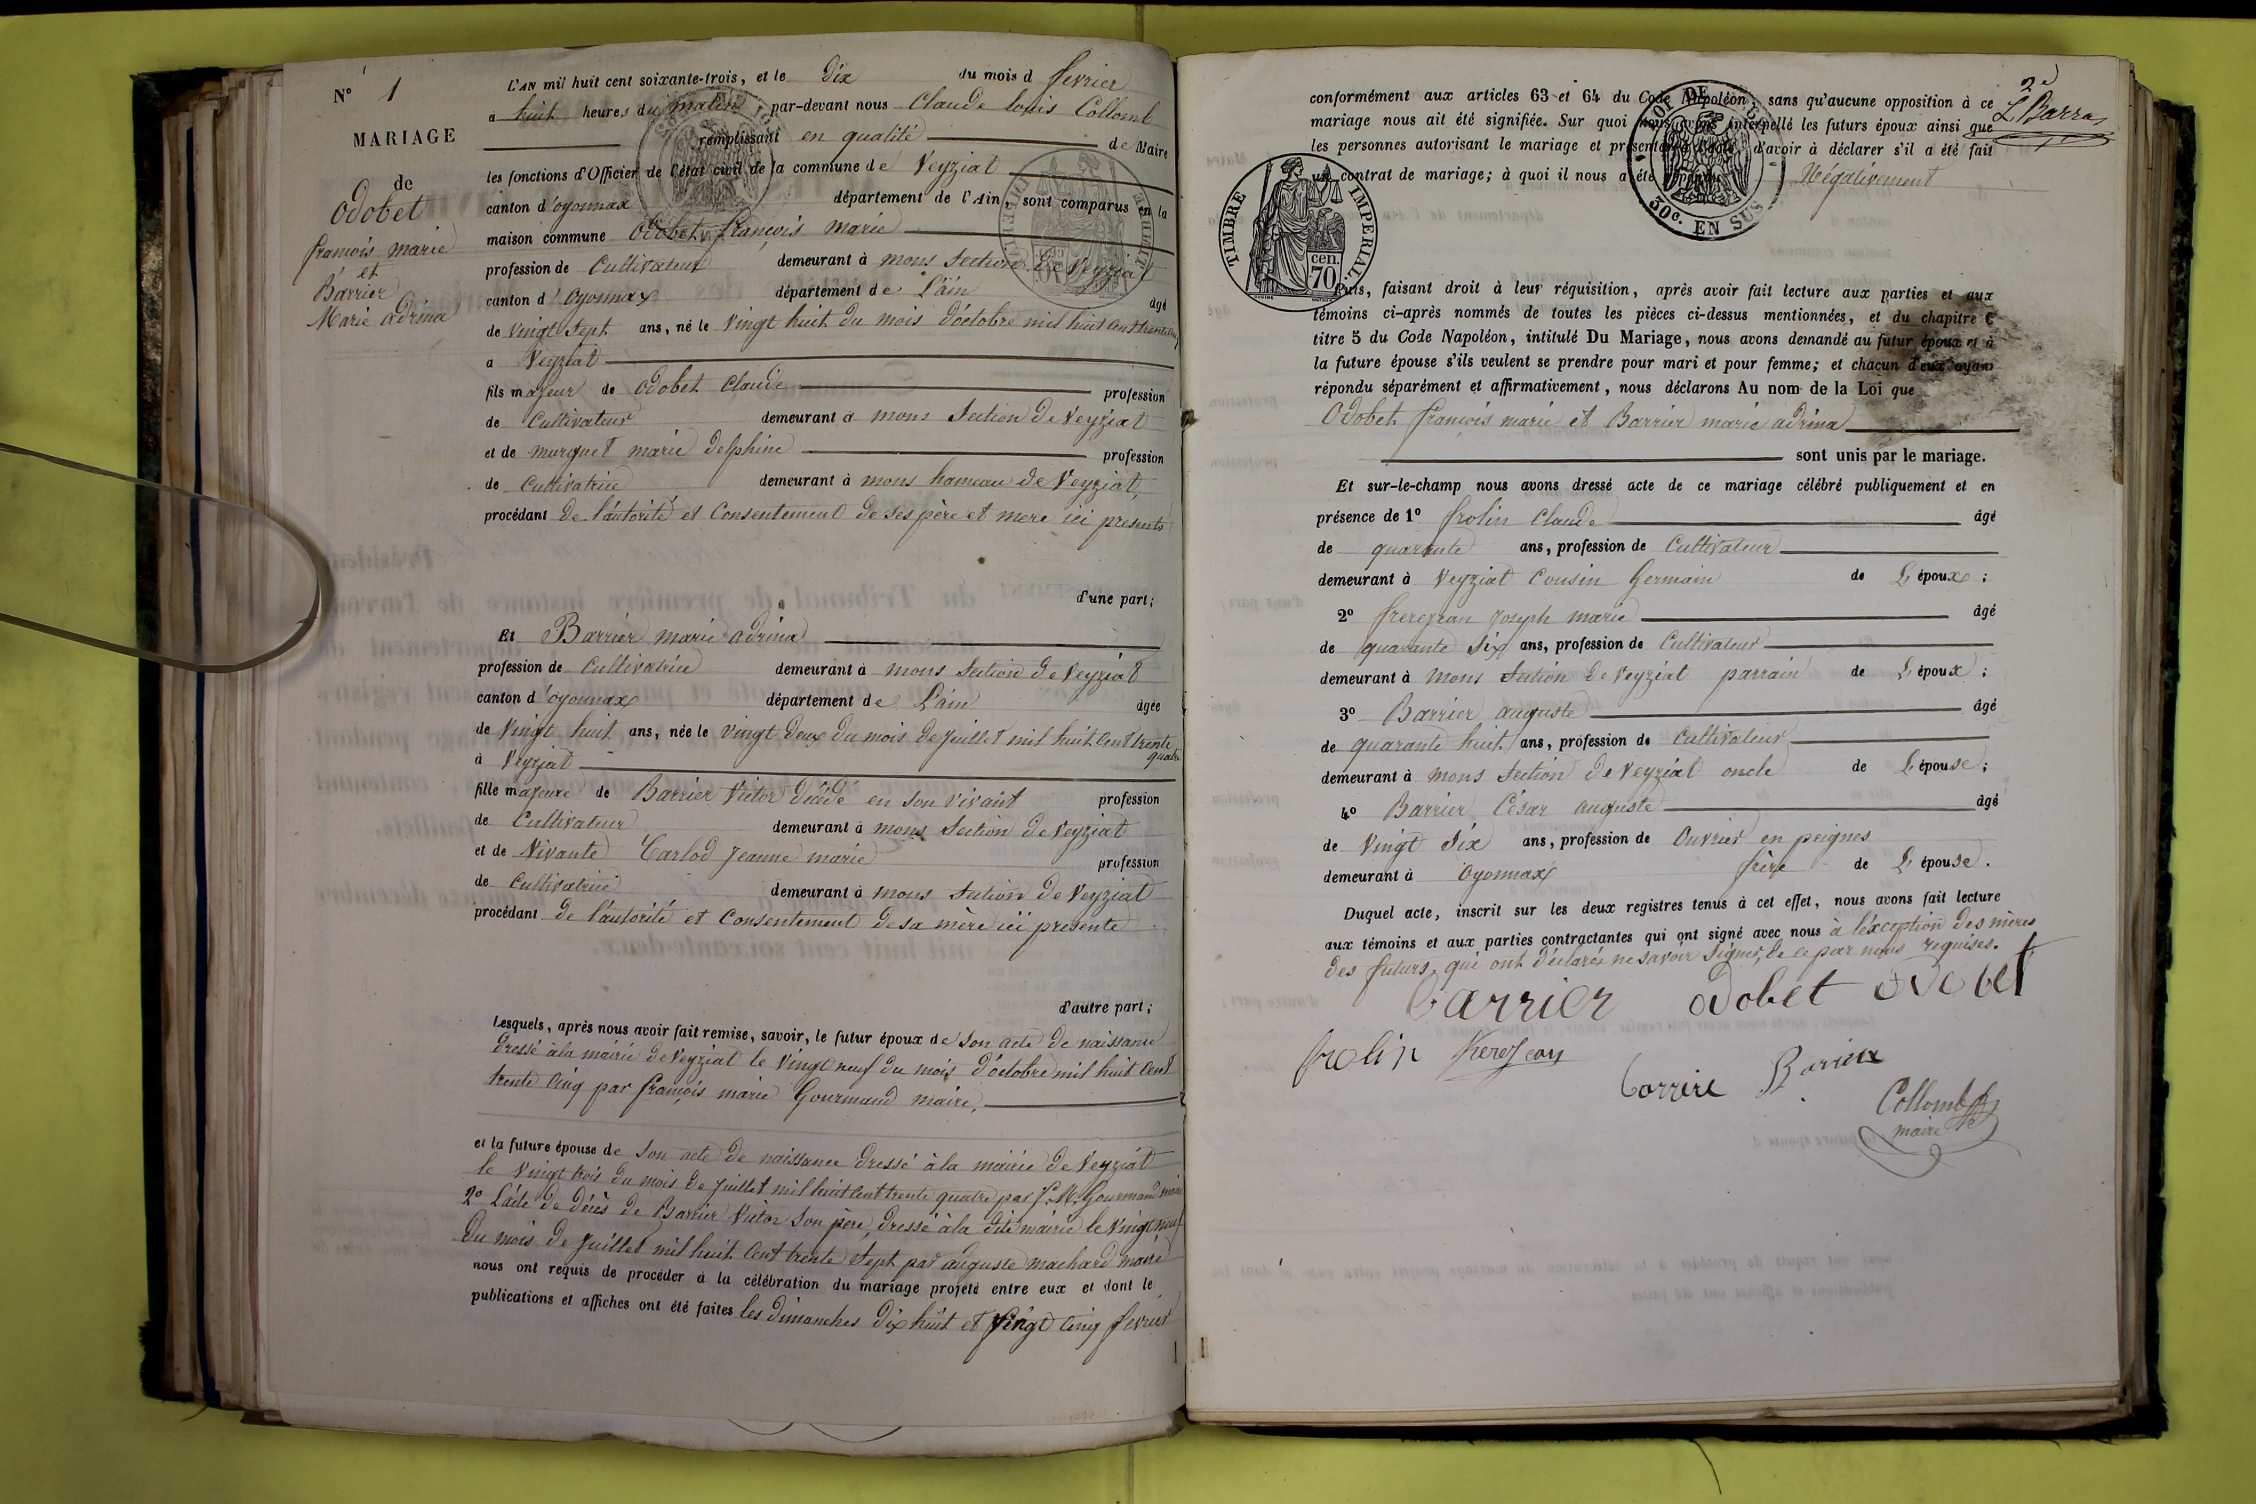 N° 1
MARIAGE
de
Odobet
françois marie
et
Barrier
Marie adrina
L'AN mil huit cent soixante-trois, et le Dix du mois d fevrier
à huit heures du matin, par-devant nous Claude Louis Collomb
remplissant en qualité de Maire
les fonctions d'Officier de l'état civil de la commune de Veyziat
canton d'oyonnax département de l'Ain, sont comparus en la
maison commune Odobet françois marie
profession de Cultivateur demeurant à mons Section de Veyziat
canton d'Oyonnax département de L'ain âgé
de Vingt Sept ans, né le Vingt huit du mois d'octobre mil huit Cent trente cinq
à Veyziat
fils majeur de Odobet Claude profession
de Cultivateur demeurant à mons Section de Veyziat
et de murquet marie delphine profession
de Cultivatrice demeurant à mons hameau de Veyziat,
procédant de l'autorité et Consentement de ses père et mere ici presents
d'une part;
Et Barrier marie adrina
profession de Cultivatrice demeurant à mons Section de Veyziat
canton d'oyonnax département de L'ain âgée
de Vingt huit ans, née le Vingt deux du mois de Juillet mil huit Cent trente
quatre
à Veyziat
fille majeure de Barrier Victor décédé en son vivant profession
de Cultivateur demeurant à mons Section de Veyziat
et de Vivante Carlod Jeanne marie profession
de Cultivatrice demeurant à mons Section de Veyziat
procédant de l'autorité et Consentement de sa mère ici presente
d'autre part;
Lesquels, après nous avoir fait remise, savoir, le futur époux de Son acte de naissance
dressé à la mairie de Veyziat le Vingt neuf du mois d'octobre mil huit Cent
trente Cinq par françois marie Gourmand maire,
et la future épouse de Son acte de naissance dressé à la mairie de Veyziat
le Vingt trois du mois de Juillet mil huit Cent trente quatre par f. M. Gourmand maire
2° L'acte de décès de Barrier Victor Son père, dressé à la dite mairie le Vingt neuf
du mois de Juillet mil huit Cent trente Sept par auguste machard maire
nous ont requis de procéder à la célébration du mariage projeté entre eux et dont le
publications et affiches ont été faites les dimanches Dix huit et Vingt Cinq fevrier
2e
L. Barras
conformément aux articles 63 et 64 du Code Napoléon, sans qu'aucune opposition à ce
mariage nous ait été signifiée. Sur quoi nous avons interpellé les futurs époux ainsi que
les personnes autorisant le mariage et présentes à l'acte, d'avoir à déclarer s'il a été fait
un contrat de mariage; à quoi il nous a été répondu Négativement
LOI DE
30c. EN SUS
TIMBRE IMPERIAL
cen.
70
Puis, faisant droit à leur réquisition, après avoir fait lecture aux parties et aux
témoins ci-après nommés de toutes les pièces ci-dessus mentionnées, et du chapitre 6
titre 5 du Code Napoléon, intitulé Du Mariage, nous avons demandé au futur époux et à
la future épouse s'ils veulent se prendre pour mari et pour femme; et chacun d'eux ayant
répondu séparément et affirmativement, nous déclarons Au nom de la Loi que
Odobet françois marie et Barrier marie adrina
sont unis par le mariage.
Et sur-le-champ nous avons dressé acte de ce mariage célébré publiquement et en
présence de 1° frolin Claude âgé
de quarante ans, profession de Cultivateur
demeurant à Veyziat Cousin Germain de L'époux;
2° frerejean Joseph marie âgé
de quarante Six ans, profession de Cultivateur
demeurant à mons Section de Veyziat parrain de L'époux;
3° Barrier auguste âgé
de quarante huit ans, profession de Cultivateur
demeurant à mons Section de Veyziat oncle de L'épouse;
4° Barrier César auguste âgé
de Vingt Six ans, profession de Ouvrier en peignes
demeurant à Oyonnax frère de L'épouse.
Duquel acte, inscrit sur les deux registres tenus à cet effet, nous avons fait lecture
aux témoins et aux parties contractantes qui ont signé avec nous à l'éxception des mères
des futurs, qui ont déclaré ne savoir Signer, de ce par nous requises.
Barrier odobet odobet
frolin frerejean
Barrier
Collomb
maire